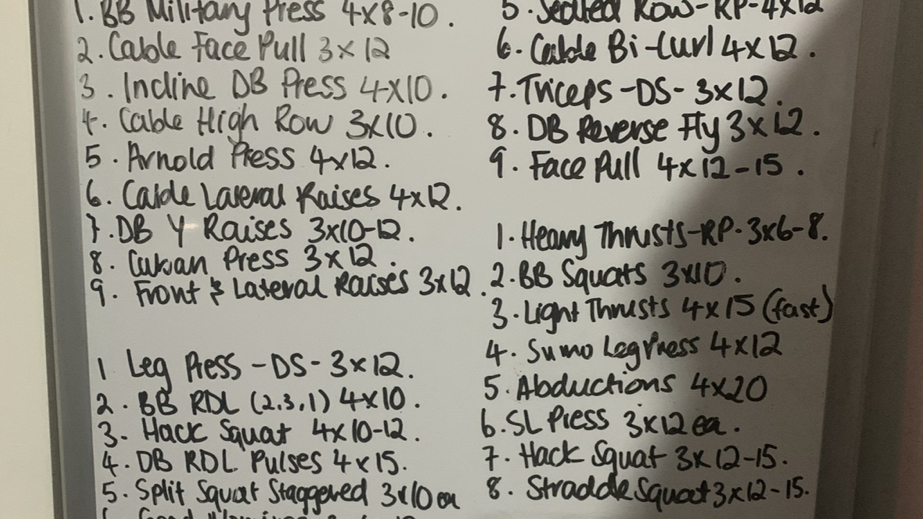 1. BB Military Press 4x8-10.
2. Cable Face Pull 3x12
3. Incline DB Press 4x10.
4. Cable High Row 3x10.
5. Arnold Press 4x12.
6. Cable Lateral Raises 4x12.
7. DB Y Raises 3x10-12.
8. Cuban Press 3x12.
9. Front & Lateral Raises 3x12.
1 Leg Press -DS- 3x12.
2. BB RDL (2,3,1) 4x10.
3- Hack Squat 4x10-12.
4. DB RDL Pulses 4x15.
5. Split Squat Staggered 3x10 ea
5. Seated Row-RP-4x12
6. Cable Bi-Curl 4x12.
7. Triceps -DS- 3x12.
8. DB Reverse Fly 3x12.
9. Face Pull 4x12-15.
1. Heavy Thrusts-RP-3x6-8.
2. BB Squats 3x10.
3. Light Thrusts 4x15 (fast)
4. Sumo Leg Press 4x12
5. Abductions 4x20
6. SL Press 3x12 ea.
7. Hack Squat 3x12-15.
8. Stradde Squat 3x12-15.